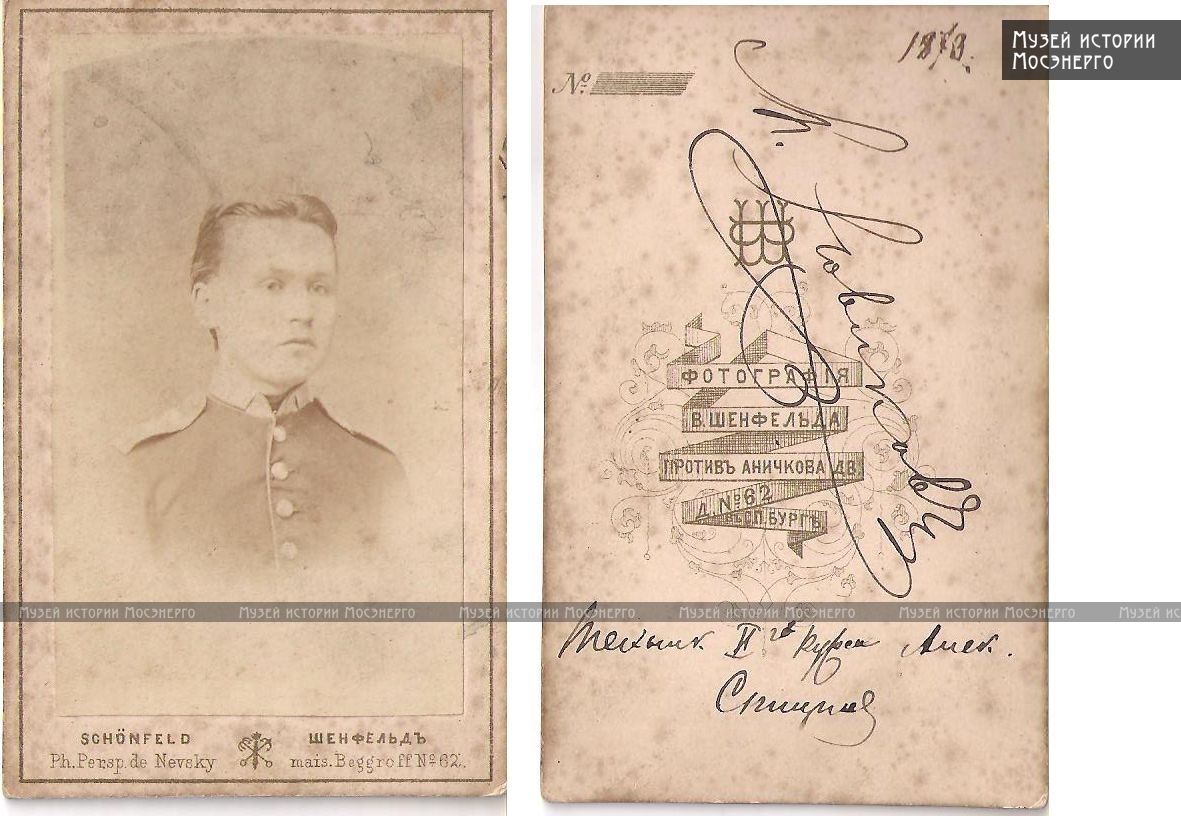 SCHÖNFELD
ШЕНФЕЛЬДЪ
Ph. Persp. de Nevsky
mais. Beggroff № 62.
Музей истории
Мосэнерго
1878.
№
ФОТОГРАФІЯ
В. ШЕНФЕЛЬДА
ПРОТИВЪ АНИЧКОВА ДВ
Д. № 62
С.П.БУРГЪ
Техник II го курса Алек.
Музей истории Мосэнерго Музей истории Мосэнерго Музей истории Мосэнерго Музей истории Мосэнерго Музей истории Мосэнерго Музей ис